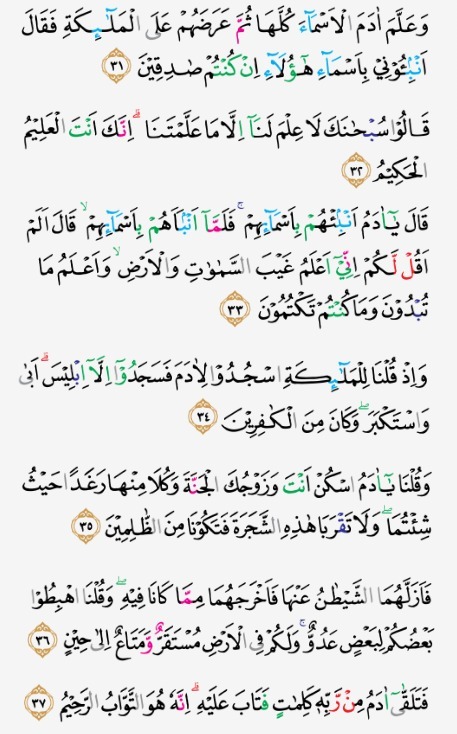 وَعَلَّمَ اٰدَمَ الْاَسْمَاۤءَ كُلَّهَا ثُمَّ عَرَضَهُمْ عَلَى الْمَلٰۤىِٕكَةِ فَقَالَ
اَنْۢبِـُٔوْنِيْ بِاَسْمَاۤءِ هٰٓؤُلَاۤءِ اِنْ كُنْتُمْ صٰدِقِيْنَ ٣١
قَالُوْا سُبْحٰنَكَ لَا عِلْمَ لَنَآ اِلَّا مَا عَلَّمْتَنَا ۗاِنَّكَ اَنْتَ الْعَلِيْمُ
الْحَكِيْمُ ٣٢
قَالَ يٰٓاٰدَمُ اَنْۢبِئْهُمْ بِاَسْمَاۤىِٕهِمْ ۚ فَلَمَّآ اَنْۢبَاَهُمْ بِاَسْمَاۤىِٕهِمْۙ قَالَ اَلَمْ
اَقُلْ لَّكُمْ اِنِّيْٓ اَعْلَمُ غَيْبَ السَّمٰوٰتِ وَالْاَرْضِۙ وَاَعْلَمُ مَا
تُبْدُوْنَ وَمَا كُنْتُمْ تَكْتُمُوْنَ ٣٣
وَاِذْ قُلْنَا لِلْمَلٰۤىِٕكَةِ اسْجُدُوْا لِاٰدَمَ فَسَجَدُوْٓا اِلَّآ اِبْلِيْسَۗ اَبٰى
وَاسْتَكْبَرَۖ وَكَانَ مِنَ الْكٰفِرِيْنَ ٣٤
وَقُلْنَا يٰٓاٰدَمُ اسْكُنْ اَنْتَ وَزَوْجُكَ الْجَنَّةَ وَكُلَا مِنْهَا رَغَدًا حَيْثُ
شِئْتُمَاۖ وَلَا تَقْرَبَا هٰذِهِ الشَّجَرَةَ فَتَكُوْنَا مِنَ الظّٰلِمِيْنَ ٣٥
فَاَزَلَّهُمَا الشَّيْطٰنُ عَنْهَا فَاَخْرَجَهُمَا مِمَّا كَانَا فِيْهِۖ وَقُلْنَا اهْبِطُوْا
بَعْضُكُمْ لِبَعْضٍ عَدُوٌّۚ وَلَكُمْ فِى الْاَرْضِ مُسْتَقَرٌّ وَّمَتَاعٌ اِلٰى حِيْنٍ ٣٦
فَتَلَقّٰٓى اٰدَمُ مِنْ رَّبِّهٖ كَلِمٰتٍ فَتَابَ عَلَيْهِۗ اِنَّهٗ هُوَ التَّوَّابُ الرَّحِيْمُ ٣٧